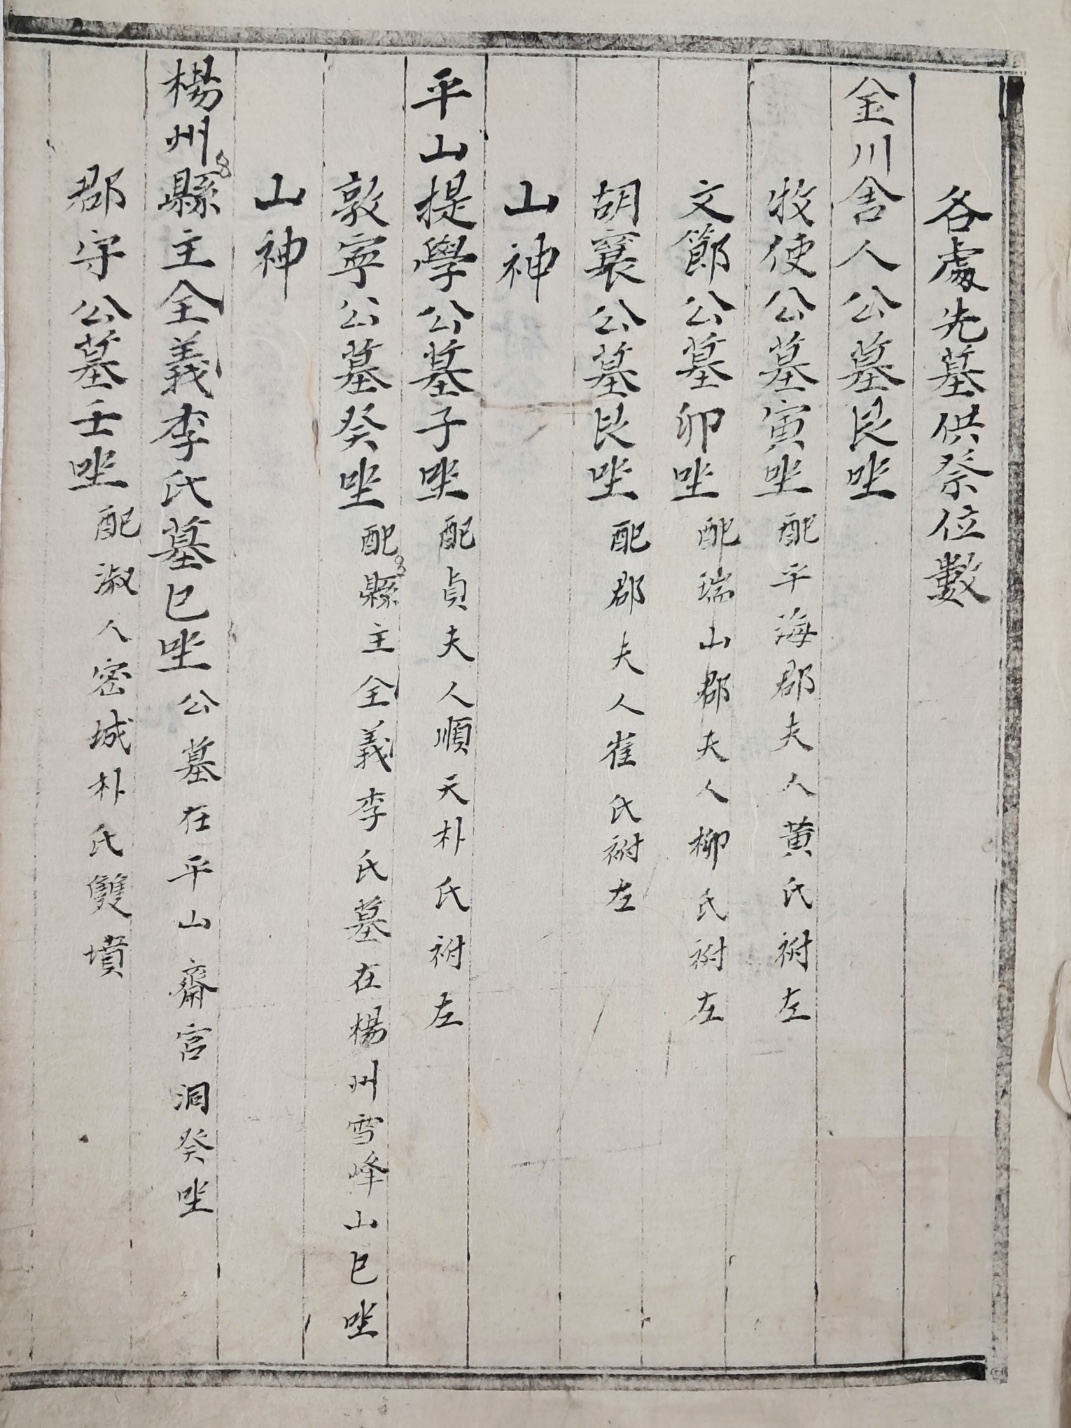 各處先墓供祭位數
金川舍人公墓艮坐
牧使公墓寅坐 配平海郡夫人黄氏祔左
文節公墓卯坐 配瑞山郡夫人柳氏祔左
胡襄公墓艮坐 配郡夫人崔氏祔左
山神
平山提學公墓子坐 配貞夫人順天朴氏祔左
敦寧公墓癸坐 配縣主全義李氏墓在楊州雪峰山巳坐
山神
楊州縣主全義李氏墓巳坐 公墓在平山齋宮洞癸坐
郡守公墓壬坐 配淑人密城朴氏雙墳